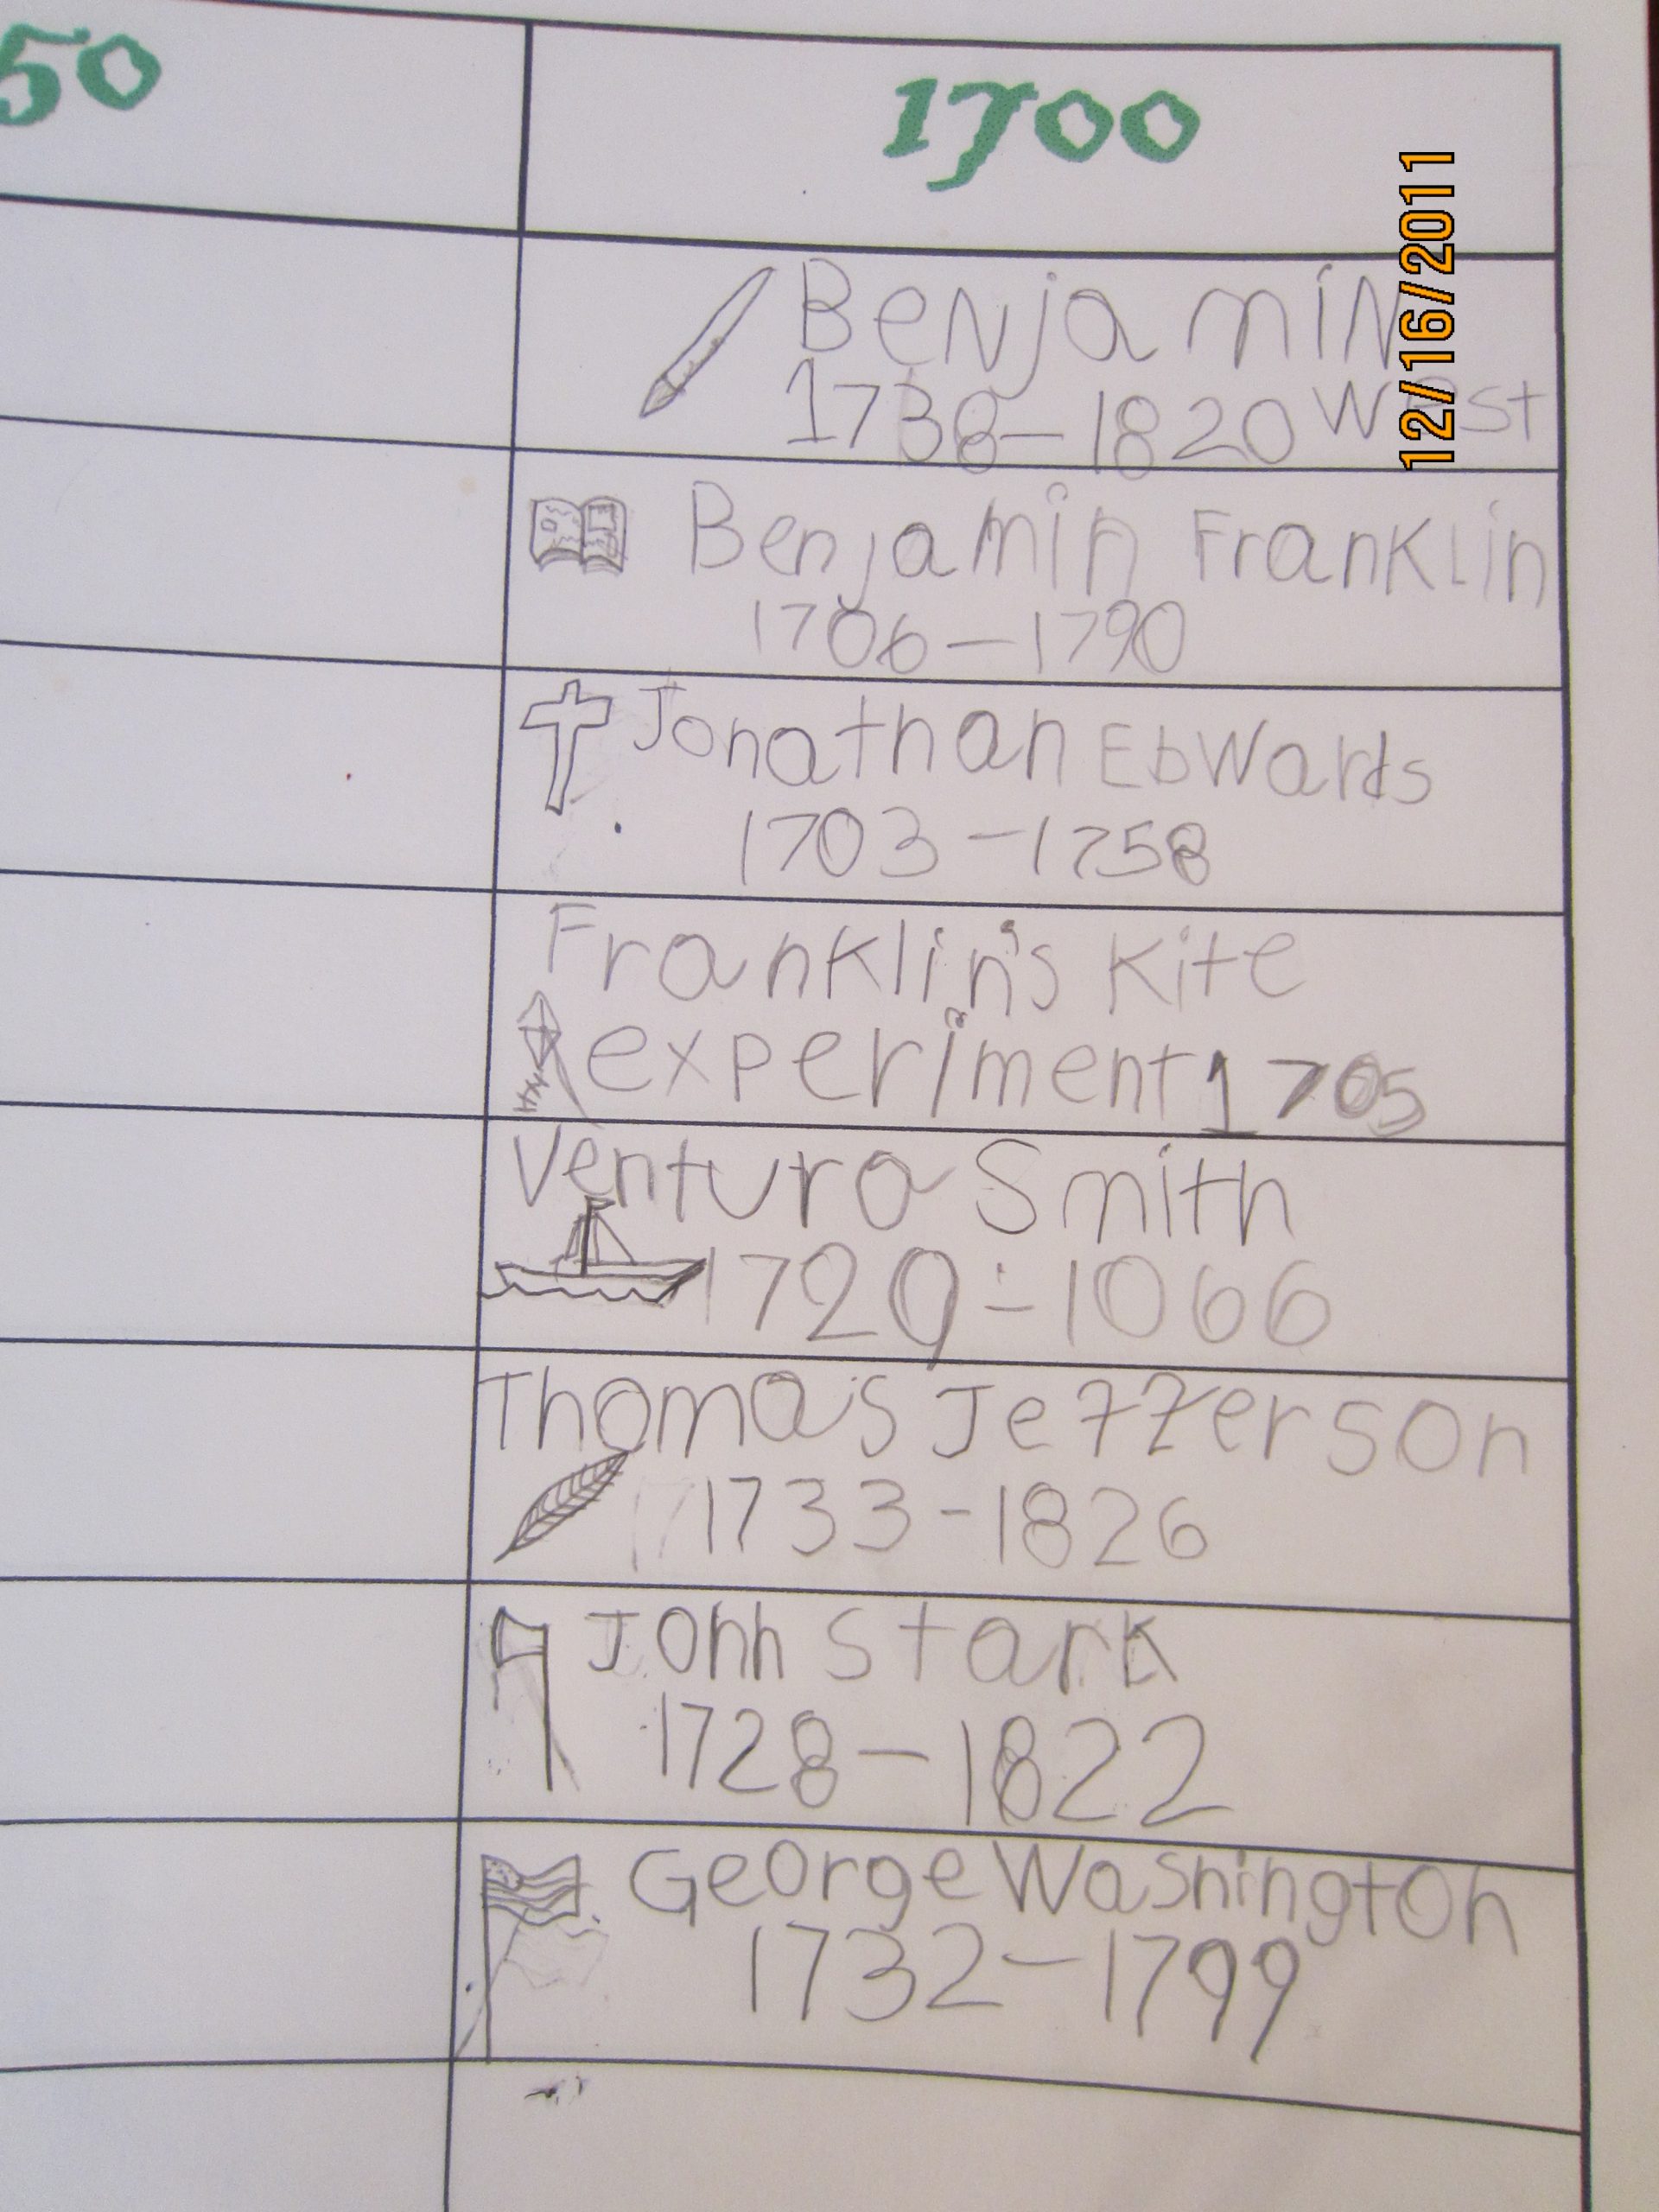 50
1700
12/16/2011
Benjamin
1738-1820 West
Benjamin Franklin
1706-1790
Jonathan EbWards
1703-1758
Franklin's Kite
experiment 1705
Ventura Smith
1729-1066
Thomas Jefferson
1733-1826
John Stark
1728-1822
George Washington
1732-1799